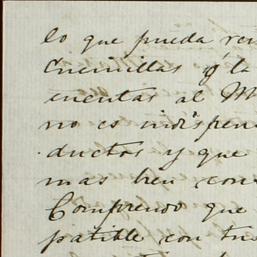 lo que pueda ren
Cuenillas y la
cuentas al M
no es indispen
ductos y que
mas bien con
Comprendo que
patible con tus